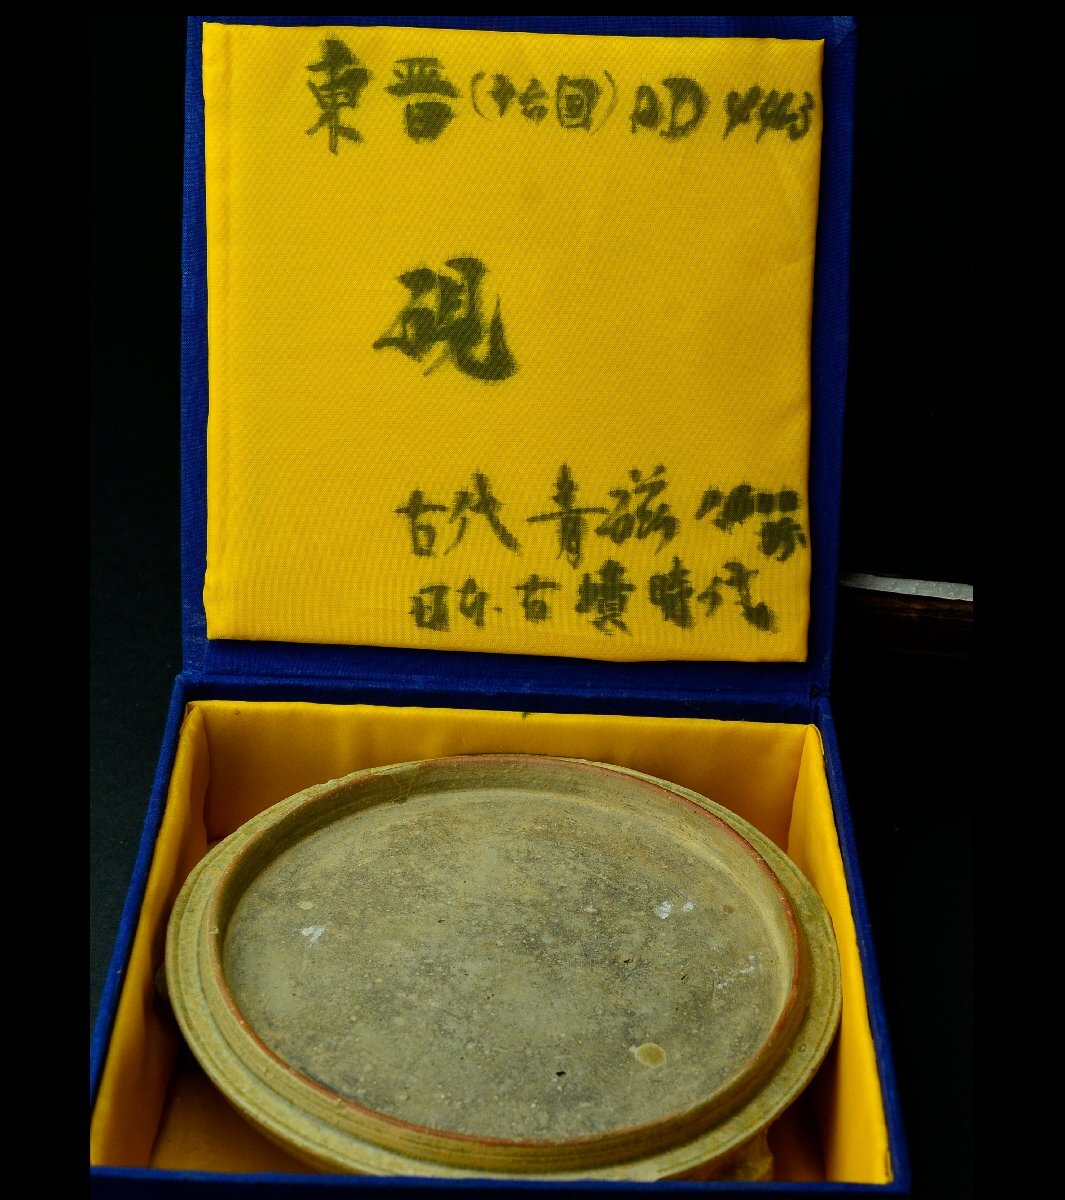 東晋(十六国)AD 443
硯
古代 青磁
日本.古墳時代